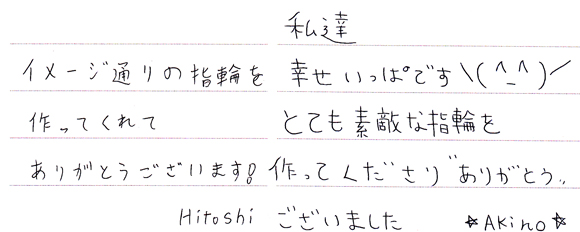 イメージ通りの指輪を
作ってくれて
ありがとうございます!
Hitoshi
私達
幸せいっぱいです\(^_^)/
とても素敵な指輪を
作ってくださり"ありがとう"
ございました ☆AKino☆